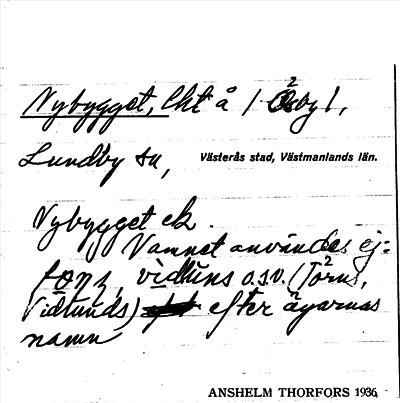 Nybygget, lht å 1 Åsby 1,
Lundby sn, Västerås stad, Västmanlands län.
Nybygget ek.
Namnet användes ej:
vidlúns o.s.v. (Törns,
Vidlunds) efter ägarnas
namn
ANSHELM THORFORS 1936